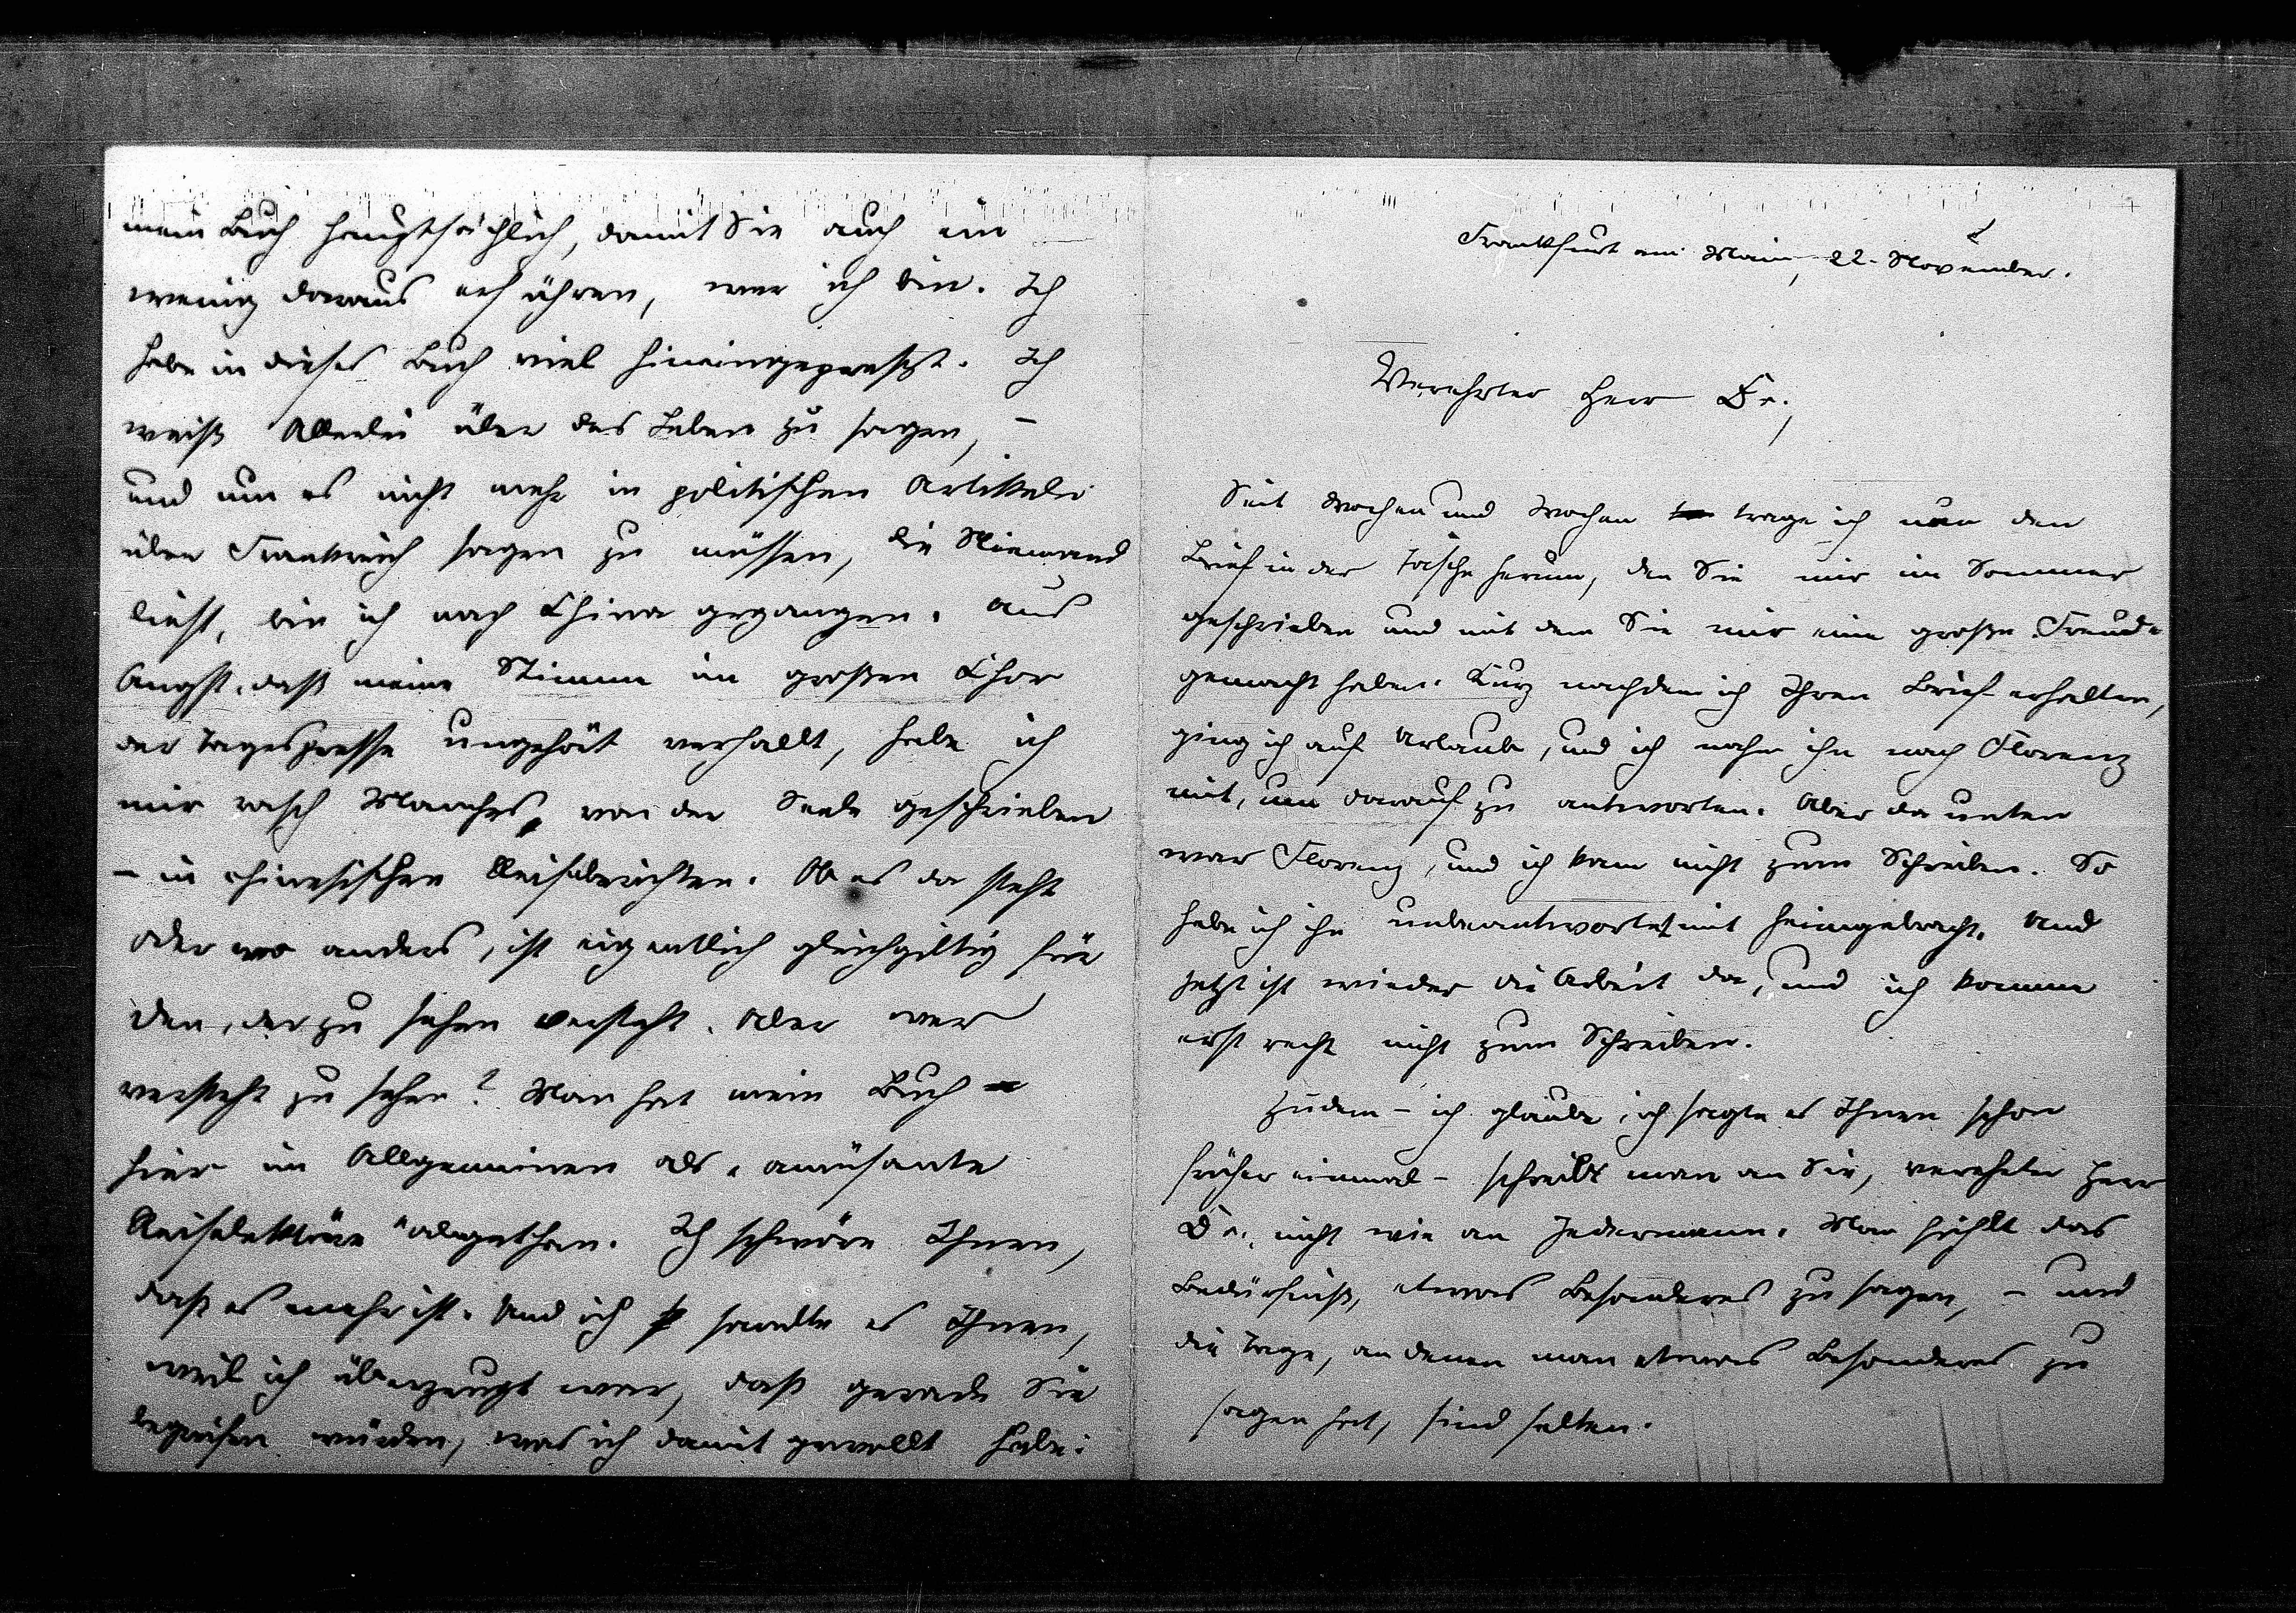 mein Buch hauptsächlich, damit Sie auch ein
wenig daraus erführen, wer ich bin. Ich
habe in dieses Buch viel hineingepreßt. Ich
weiß Allerlei über das Leben zu sagen, –
und um es nicht mehr in politischen Artikeln
über Frankreich sagen zu müssen, die Niemand
liest, bin ich nach China gegangen. Aus
Angst, daß meine Stimme im großen Chor
der Tagespresse ungehört verhallt, habe ich
mir rasch Manches von der Seele geschrieben
– in chinesischen Reiseberichten. Ob es da steht
oder wo anders, ist eigentlich gleichgiltig für
den, der zu sehen versteht. Aber wer
versteht zu sehen? Man hat mein Buch
hier im Allgemeinen als „amüsante
Reiselektüre" abgethan. Ich schwöre Ihnen,
daß es mehr ist. Und ich sandte es Ihnen,
weil ich überzeugt war, daß gerade Sie
begreifen würden, was ich damit gewollt habe.
Frankfurt am Main, 22. November.
Verehrter Herr Dr.,
Seit Wochen und Wochen trage ich nun den
Brief in der Tasche herum, den Sie mir im Sommer
geschrieben und mit dem Sie mir eine große Freude
gemacht haben. Kurz nachdem ich Ihren Brief erhalten,
ging ich auf Urlaub, und ich nahm ihn nach Florenz
mit, um darauf zu antworten. Aber da unten
war Florenz, und ich kam nicht zum Schreiben. So
habe ich ihn unbeantwortet mit heimgebracht. Und
jetzt ist wieder die Arbeit da, und ich komme
erst recht nicht zum Schreiben.
Zudem – ich glaube, ich sagte es Ihnen schon
früher einmal – schreibt man an Sie, verehrter Herr
Dr., nicht wie an Jedermann. Man fühlt das
Bedürfniß, etwas Besonderes zu sagen, – und
die Tage, an denen man etwas Besonderes zu
sagen hat, sind selten.